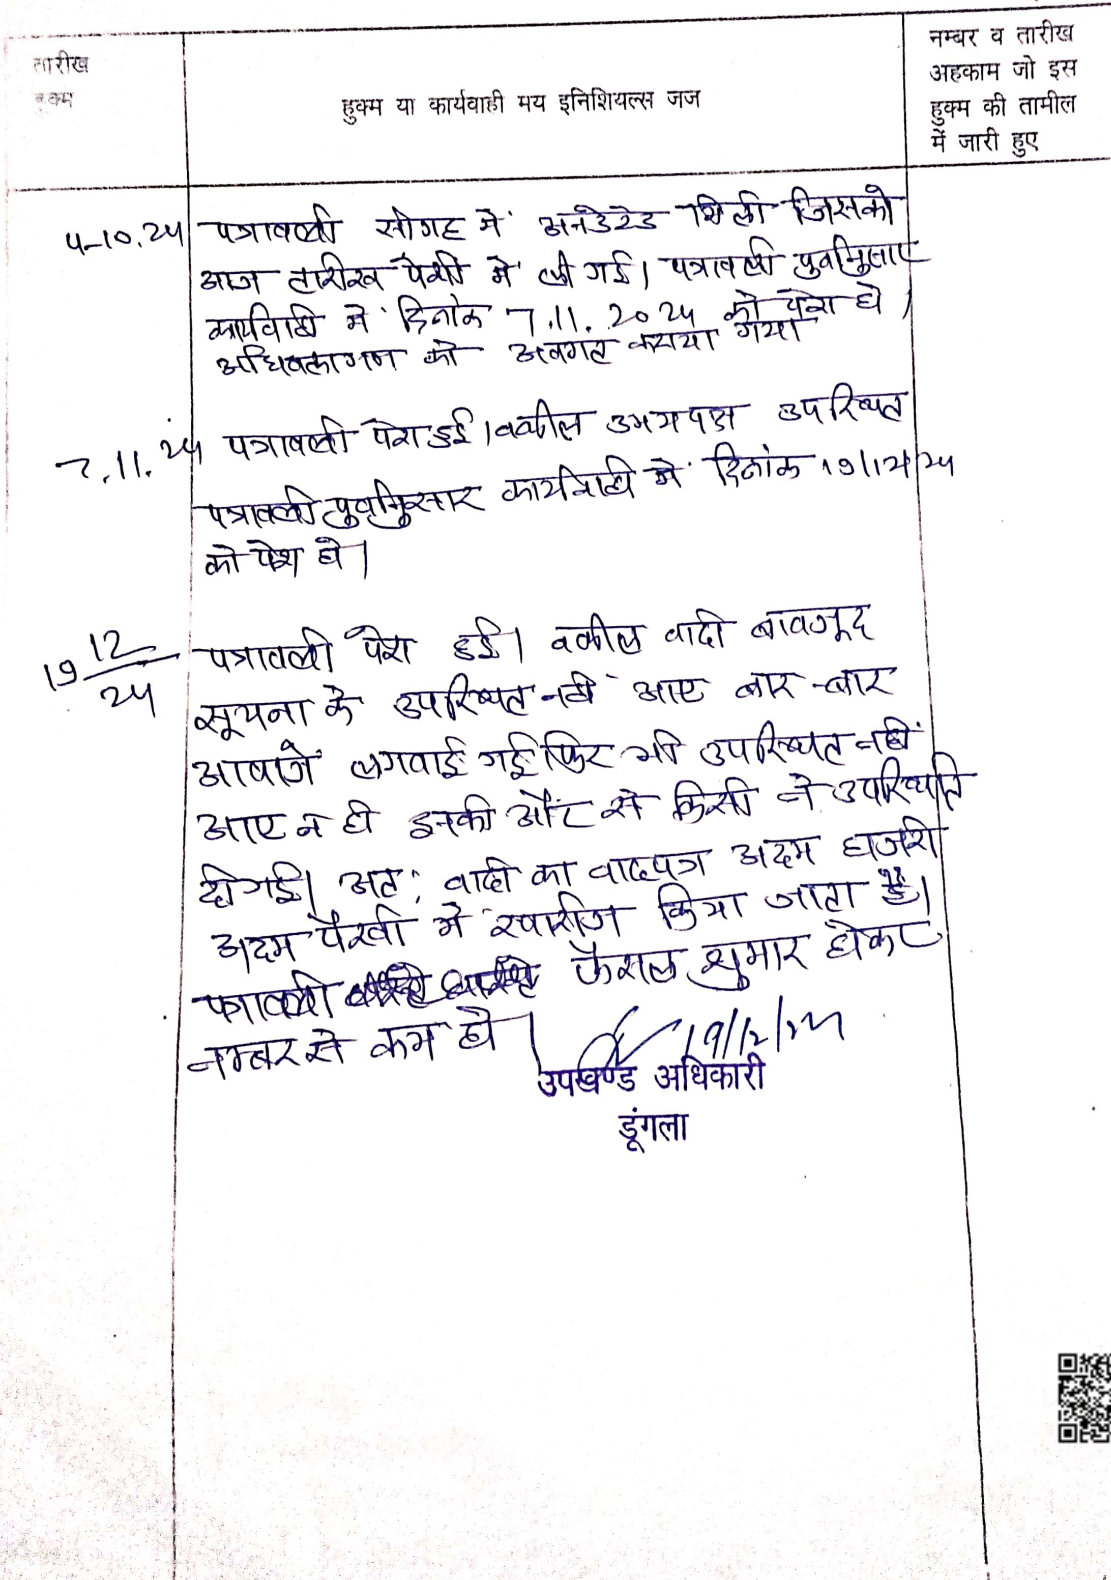 तारीख
हुक्म
हुक्म या कार्यवाही मय इनिशियल्स जज
नम्बर व तारीख
अहकाम जो इस
हुक्म की तामील
में जारी हुए
4-10.24 पत्रावली सीगह में अनडेटेड मिली जिसको
आज तारीख पेशी में ली गई। पत्रावली
कार्यवाही में दिनांक 7.11.2024 को पेश हो।
को अवगत कराया गया
7.11.24 पत्रावली पेश हुई। वकील उभयपक्ष उपस्थित
पत्रावली पुर्वानुसार कार्यवाही में दिनांक 19/12/24
को पेश हो।
19 12/24 पत्रावली पेश हुई। वकील वादी बावजूद
सूचना के उपस्थित नही आए बार-बार
आवाजें लगवाई गई फिर भी उपस्थित नहीं
आए न ही इनकी और से किसी ने उपस्थिति
दी गई। अत: वादी का वादपत्र अदम हाजरी
अदम पैरवी में खारीज किया जाता है।
पत्रावली फैसल शुमार होकर
नम्बर से कम हो।
19/12/24
उपखण्ड अधिकारी
डूंगला